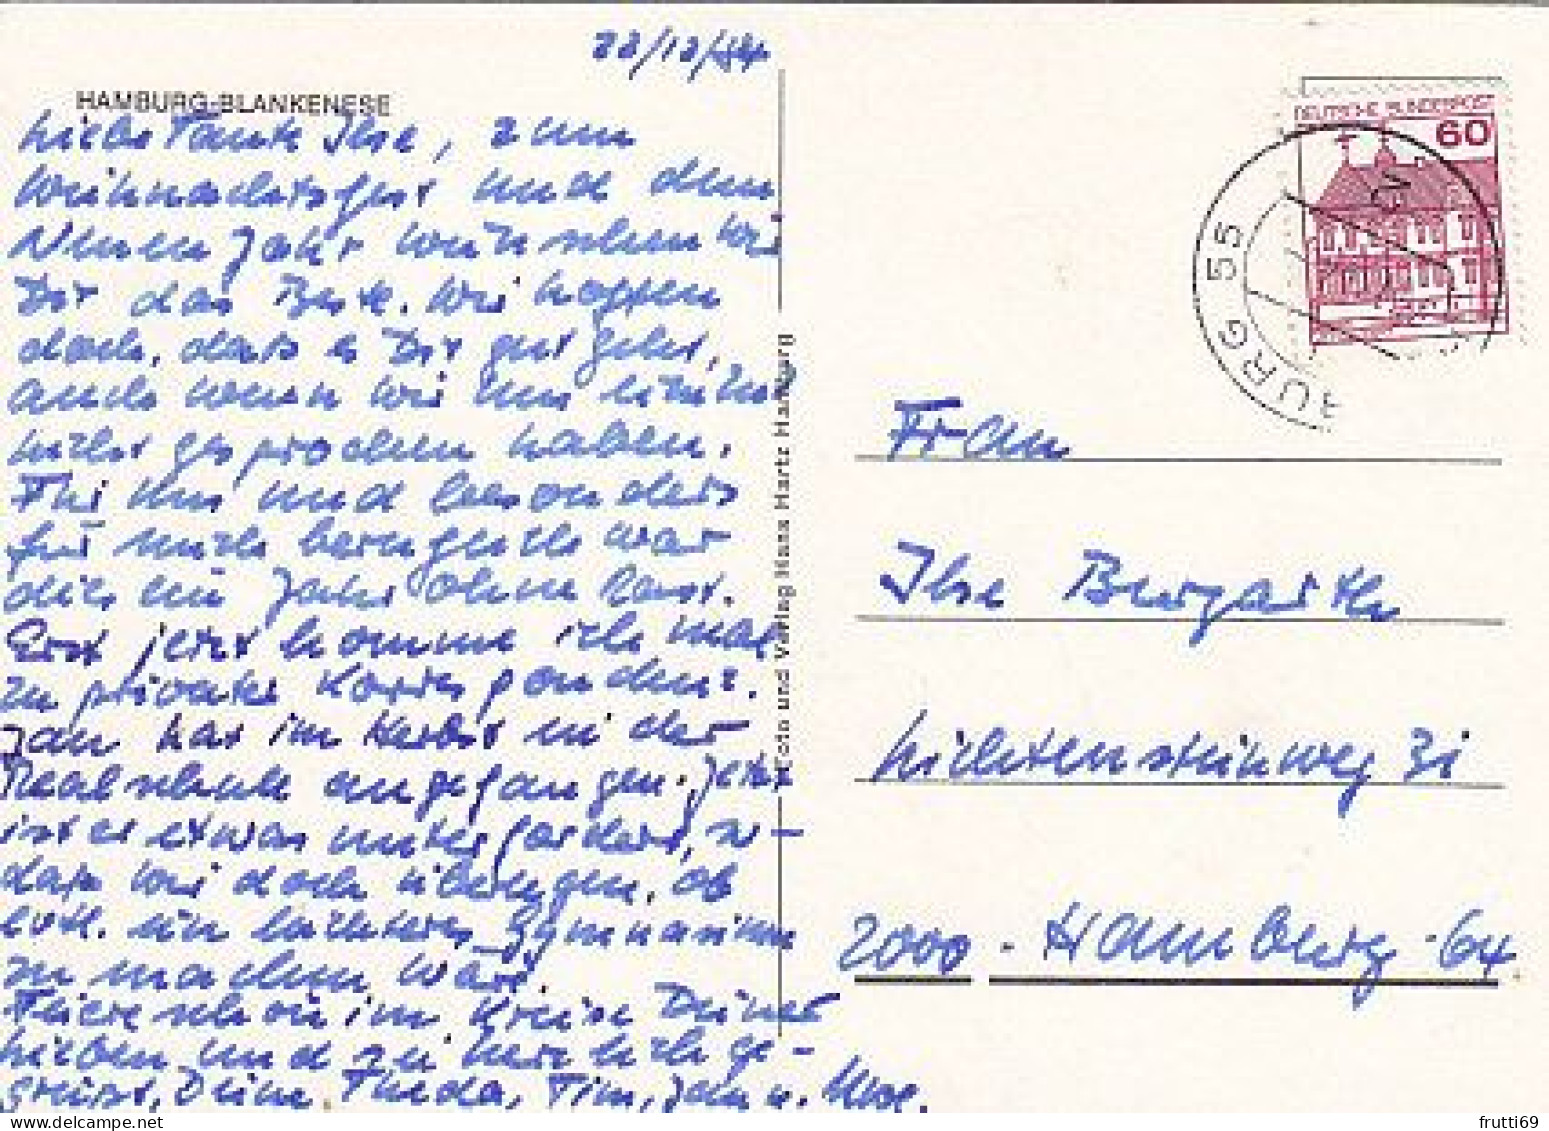 22/12/84
HAMBURG-BLANKENESE
Liebe Tante Ilse, zum
Weihnachtsfest und dem
Neuen Jahr wünschen wir
Dir das Beste. Wir hoffen
doch, dass es Dir gut geht,
auch wenn wir uns
nicht gesprochen haben.
Für uns und besonders
für mich war
dies ein Jahr ohne
Erst jetzt komme ich mal
zu privater Korrespondenz.
Jan hat im Herbst in der
Realschule angefangen. Jetzt
ist er etwas unterfordert, so-
dass wir doch überlegen, ob
evtl. ein leichteres Gymnasium
zu machen wäre.
Feiere schön im Kreise Deiner
Lieben und sei herzlich ge-
grüsst, Deine Frieda, Tim, Jan u. Uwe.
Foto und Verlag Hans Hartz Hamburg
DEUTSCHE BUNDESPOST
60
BURG 55
Frau
Ilse Burgarth
Lichtensteinweg 31
2000 - Hamburg - 64
frutti69